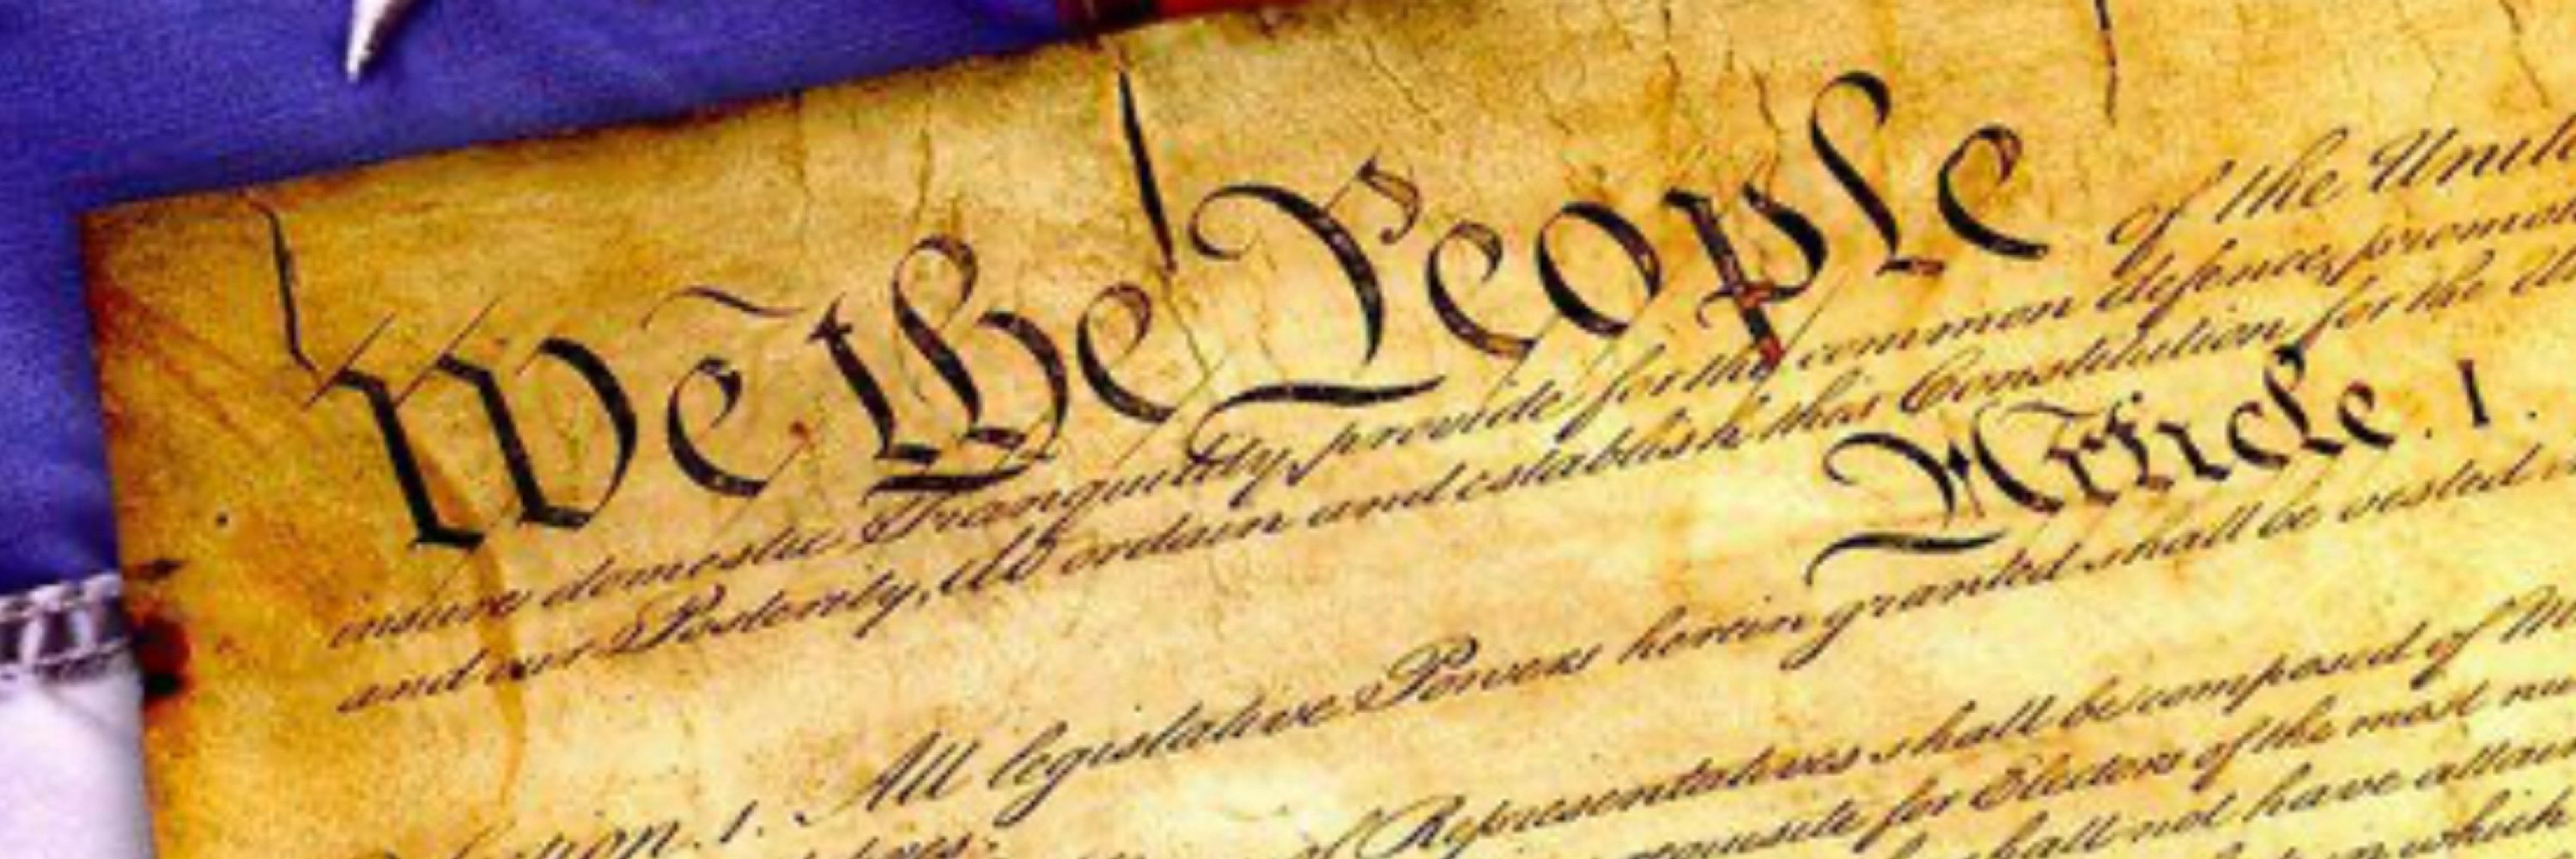 We the People of the Unite
insure domestic Tranquility, provide for the common defence, promo
and our Posterity, do ordain and establish this Constitution for the
Article. I.
ction. 1. All legislative Powers herein granted shall be vested
of Representatives shall be composed of M
requisite for Electors of the most nu
shall not have attain
which